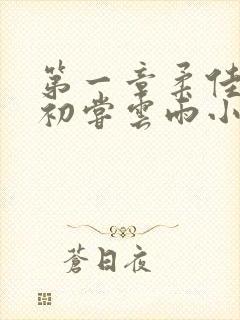 第一章柔佳
初尝雲雨小
蒼日夜